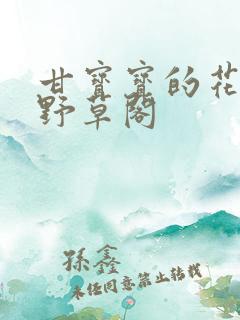 甘寳寳的花
野草閣
孫鑫
未经同意禁止转载